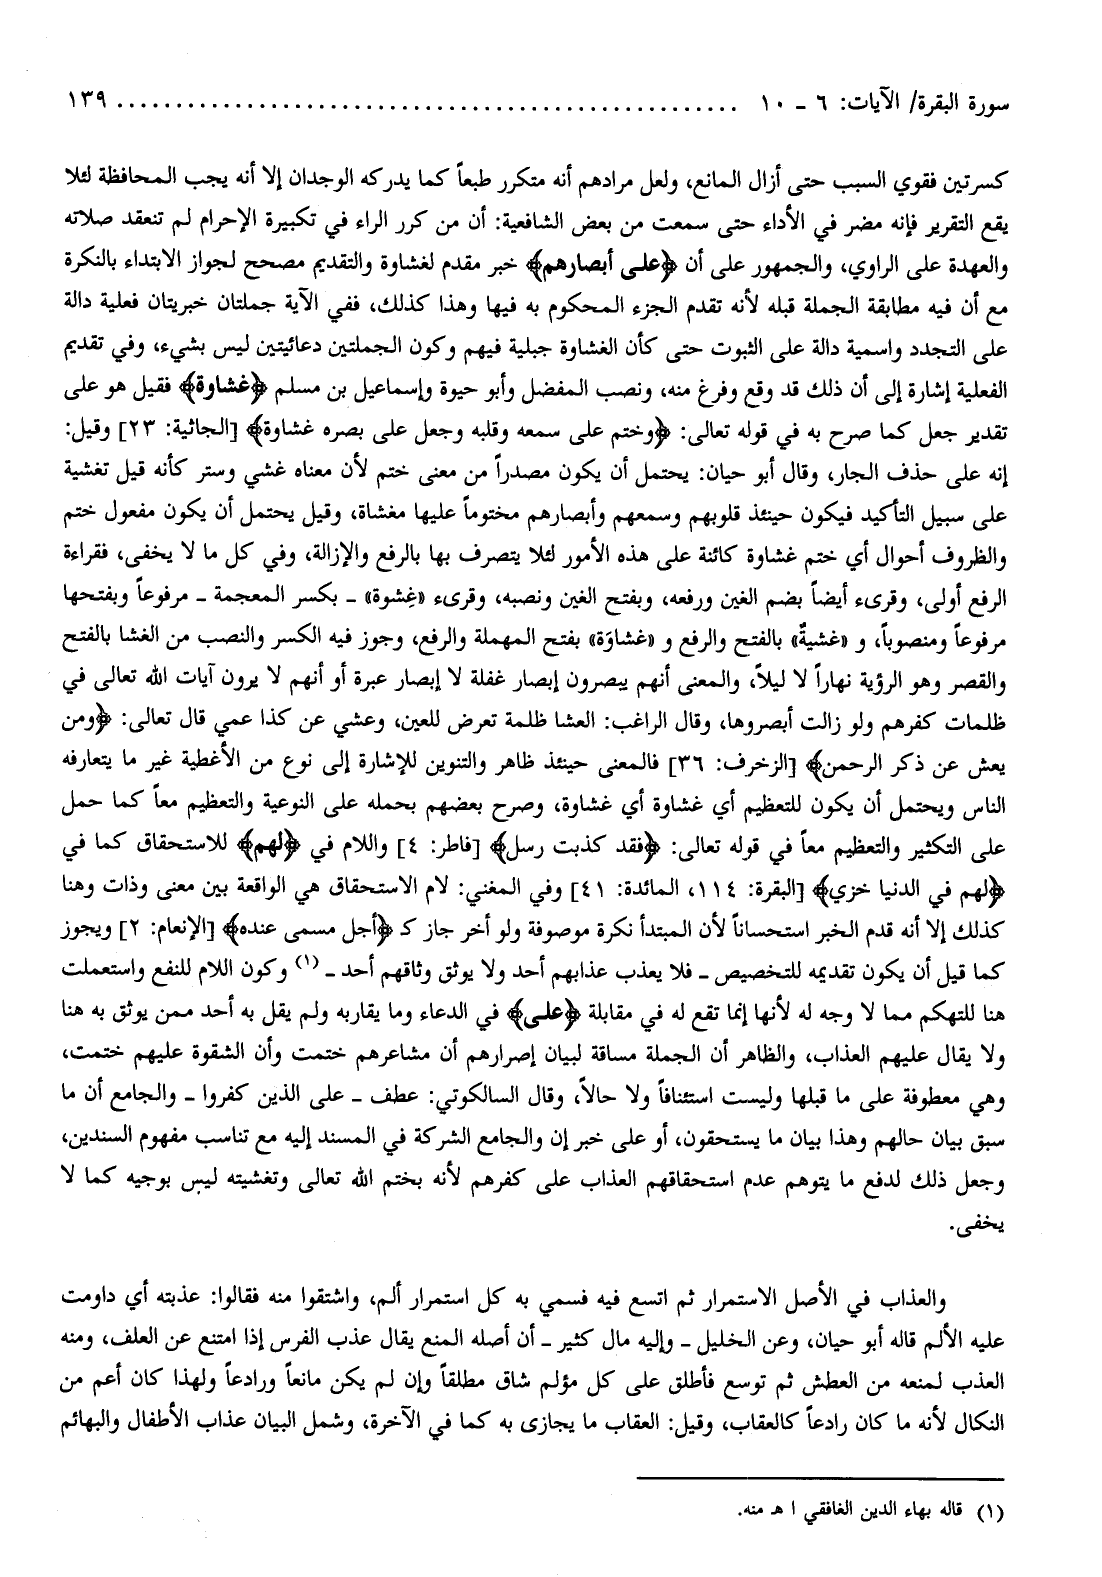 سورة البقرة/ الآيات: ٦ ـ ١٠ .......................................................... ١٣٩
كسرتين فقوي السبب حتى أزال المانع، ولعل مرادهم أنه متكرر طبعاً كما يدركه الوجدان إلا أنه يجب المحافظة لئلا
يقع التقرير فإنه مضر في الأداء حتى سمعت من بعض الشافعية: أن من كرر الراء في تكبيرة الإحرام لم تنعقد صلاته
والعهدة على الراوي، والجمهور على أن ﴿على أبصارهم﴾ خبر مقدم لغشاوة والتقديم مصحح لجواز الابتداء بالنكرة
مع أن فيه مطابقة الجملة قبله لأنه تقدم الجزء المحكوم به فيها وهذا كذلك، ففي الآية جملتان خبريتان فعلية دالة
على التجدد واسمية دالة على الثبوت حتى كأن الغشاوة جبلية فيهم وكون الجملتين دعائيتين ليس بشيء، وفي تقديم
الفعلية إشارة إلى أن ذلك قد وقع وفرغ منه، ونصب المفضل وأبو حيوة وإسماعيل بن مسلم ﴿غشاوة﴾ فقيل هو على
تقدير جعل كما صرح به في قوله تعالى: ﴿وختم على سمعه وقلبه وجعل على بصره غشاوة﴾ [الجاثية: ٢٣] وقيل:
إنه على حذف الجار، وقال أبو حيان: يحتمل أن يكون مصدراً من معنى ختم لأن معناه غشي وستر كأنه قيل تغشية
على سبيل التأكيد فيكون حينئذ قلوبهم وسمعهم وأبصارهم مختوماً عليها مغشاة، وقيل يحتمل أن يكون مفعول ختم
والظروف أحوال أي ختم غشاوة كائنة على هذه الأمور لئلا يتصرف بها بالرفع والإزالة، وفي كل ما لا يخفى، فقراءة
الرفع أولى، وقرىء أيضاً بضم الغين ورفعه، وبفتح الغين ونصبه، وقرىء «غِشوة» ـ بكسر المعجمة ـ مرفوعاً وبفتحها
مرفوعاً ومنصوباً، و «غشيةٌ» بالفتح والرفع و «غشاوَة» بفتح المهملة والرفع، وجوز فيه الكسر والنصب من الغشا بالفتح
والقصر وهو الرؤية نهاراً لا ليلاً، والمعنى أنهم يبصرون إبصار غفلة لا إبصار عبرة أو أنهم لا يرون آيات الله تعالى في
ظلمات كفرهم ولو زالت أبصروها، وقال الراغب: العشا ظلمة تعرض للعين، وعشي عن كذا عمي قال تعالى: ﴿ومن
يعش عن ذكر الرحمن﴾ [الزخرف: ٣٦] فالمعنى حينئذ ظاهر والتنوين للإشارة إلى نوع من الأغطية غير ما يتعارفه
الناس ويحتمل أن يكون للتعظيم أي غشاوة أي غشاوة، وصرح بعضهم بحمله على النوعية والتعظيم معاً كما حمل
على التكثير والتعظيم معاً في قوله تعالى: ﴿فقد كذبت رسل﴾ [فاطر: ٤] واللام في ﴿لهم﴾ للاستحقاق كما في
﴿لهم في الدنيا خزي﴾ [البقرة: ١١٤، المائدة: ٤١] وفي المغني: لام الاستحقاق هي الواقعة بين معنى وذات وهنا
كذلك إلا أنه قدم الخبر استحساناً لأن المبتدأ نكرة موصوفة ولو أخر جاز كـ ﴿أجل مسمى عنده﴾ [الإنعام: ٢] ويجوز
كما قيل أن يكون تقديمه للتخصيص ـ فلا يعذب عذابهم أحد ولا يوثق وثاقهم أحد ـ (١) وكون اللام للنفع واستعملت
هنا للتهكم مما لا وجه له لأنها إنما تقع له في مقابلة ﴿على﴾ في الدعاء وما يقاربه ولم يقل به أحد ممن يوثق به هنا
ولا يقال عليهم العذاب، والظاهر أن الجملة مساقة لبيان إصرارهم أن مشاعرهم ختمت وأن الشقوة عليهم ختمت،
وهي معطوفة على ما قبلها وليست استئنافاً ولا حالاً، وقال السالكوتي: عطف ـ على الذين كفروا ـ والجامع أن ما
سبق بيان حالهم وهذا بيان ما يستحقون، أو على خبر إن والجامع الشركة في المسند إليه مع تناسب مفهوم السندين،
وجعل ذلك لدفع ما يتوهم عدم استحقاقهم العذاب على كفرهم لأنه بختم الله تعالى وتغشيته ليس بوجيه كما لا
يخفى.
والعذاب في الأصل الاستمرار ثم اتسع فيه فسمي به كل استمرار ألم، واشتقوا منه فقالوا: عذبته أي داومت
عليه الألم قاله أبو حيان، وعن الخليل ـ وإليه مال كثير ـ أن أصله المنع يقال عذب الفرس إذا امتنع عن العلف، ومنه
العذب لمنعه من العطش ثم توسع فأطلق على كل مؤلم شاق مطلقاً وإن لم يكن مانعاً ورادعاً ولهذا كان أعم من
النكال لأنه ما كان رادعاً كالعقاب، وقيل: العقاب ما يجازى به كما في الآخرة، وشمل البيان عذاب الأطفال والبهائم
(١) قاله بهاء الدين الغافقي ا هـ منه.